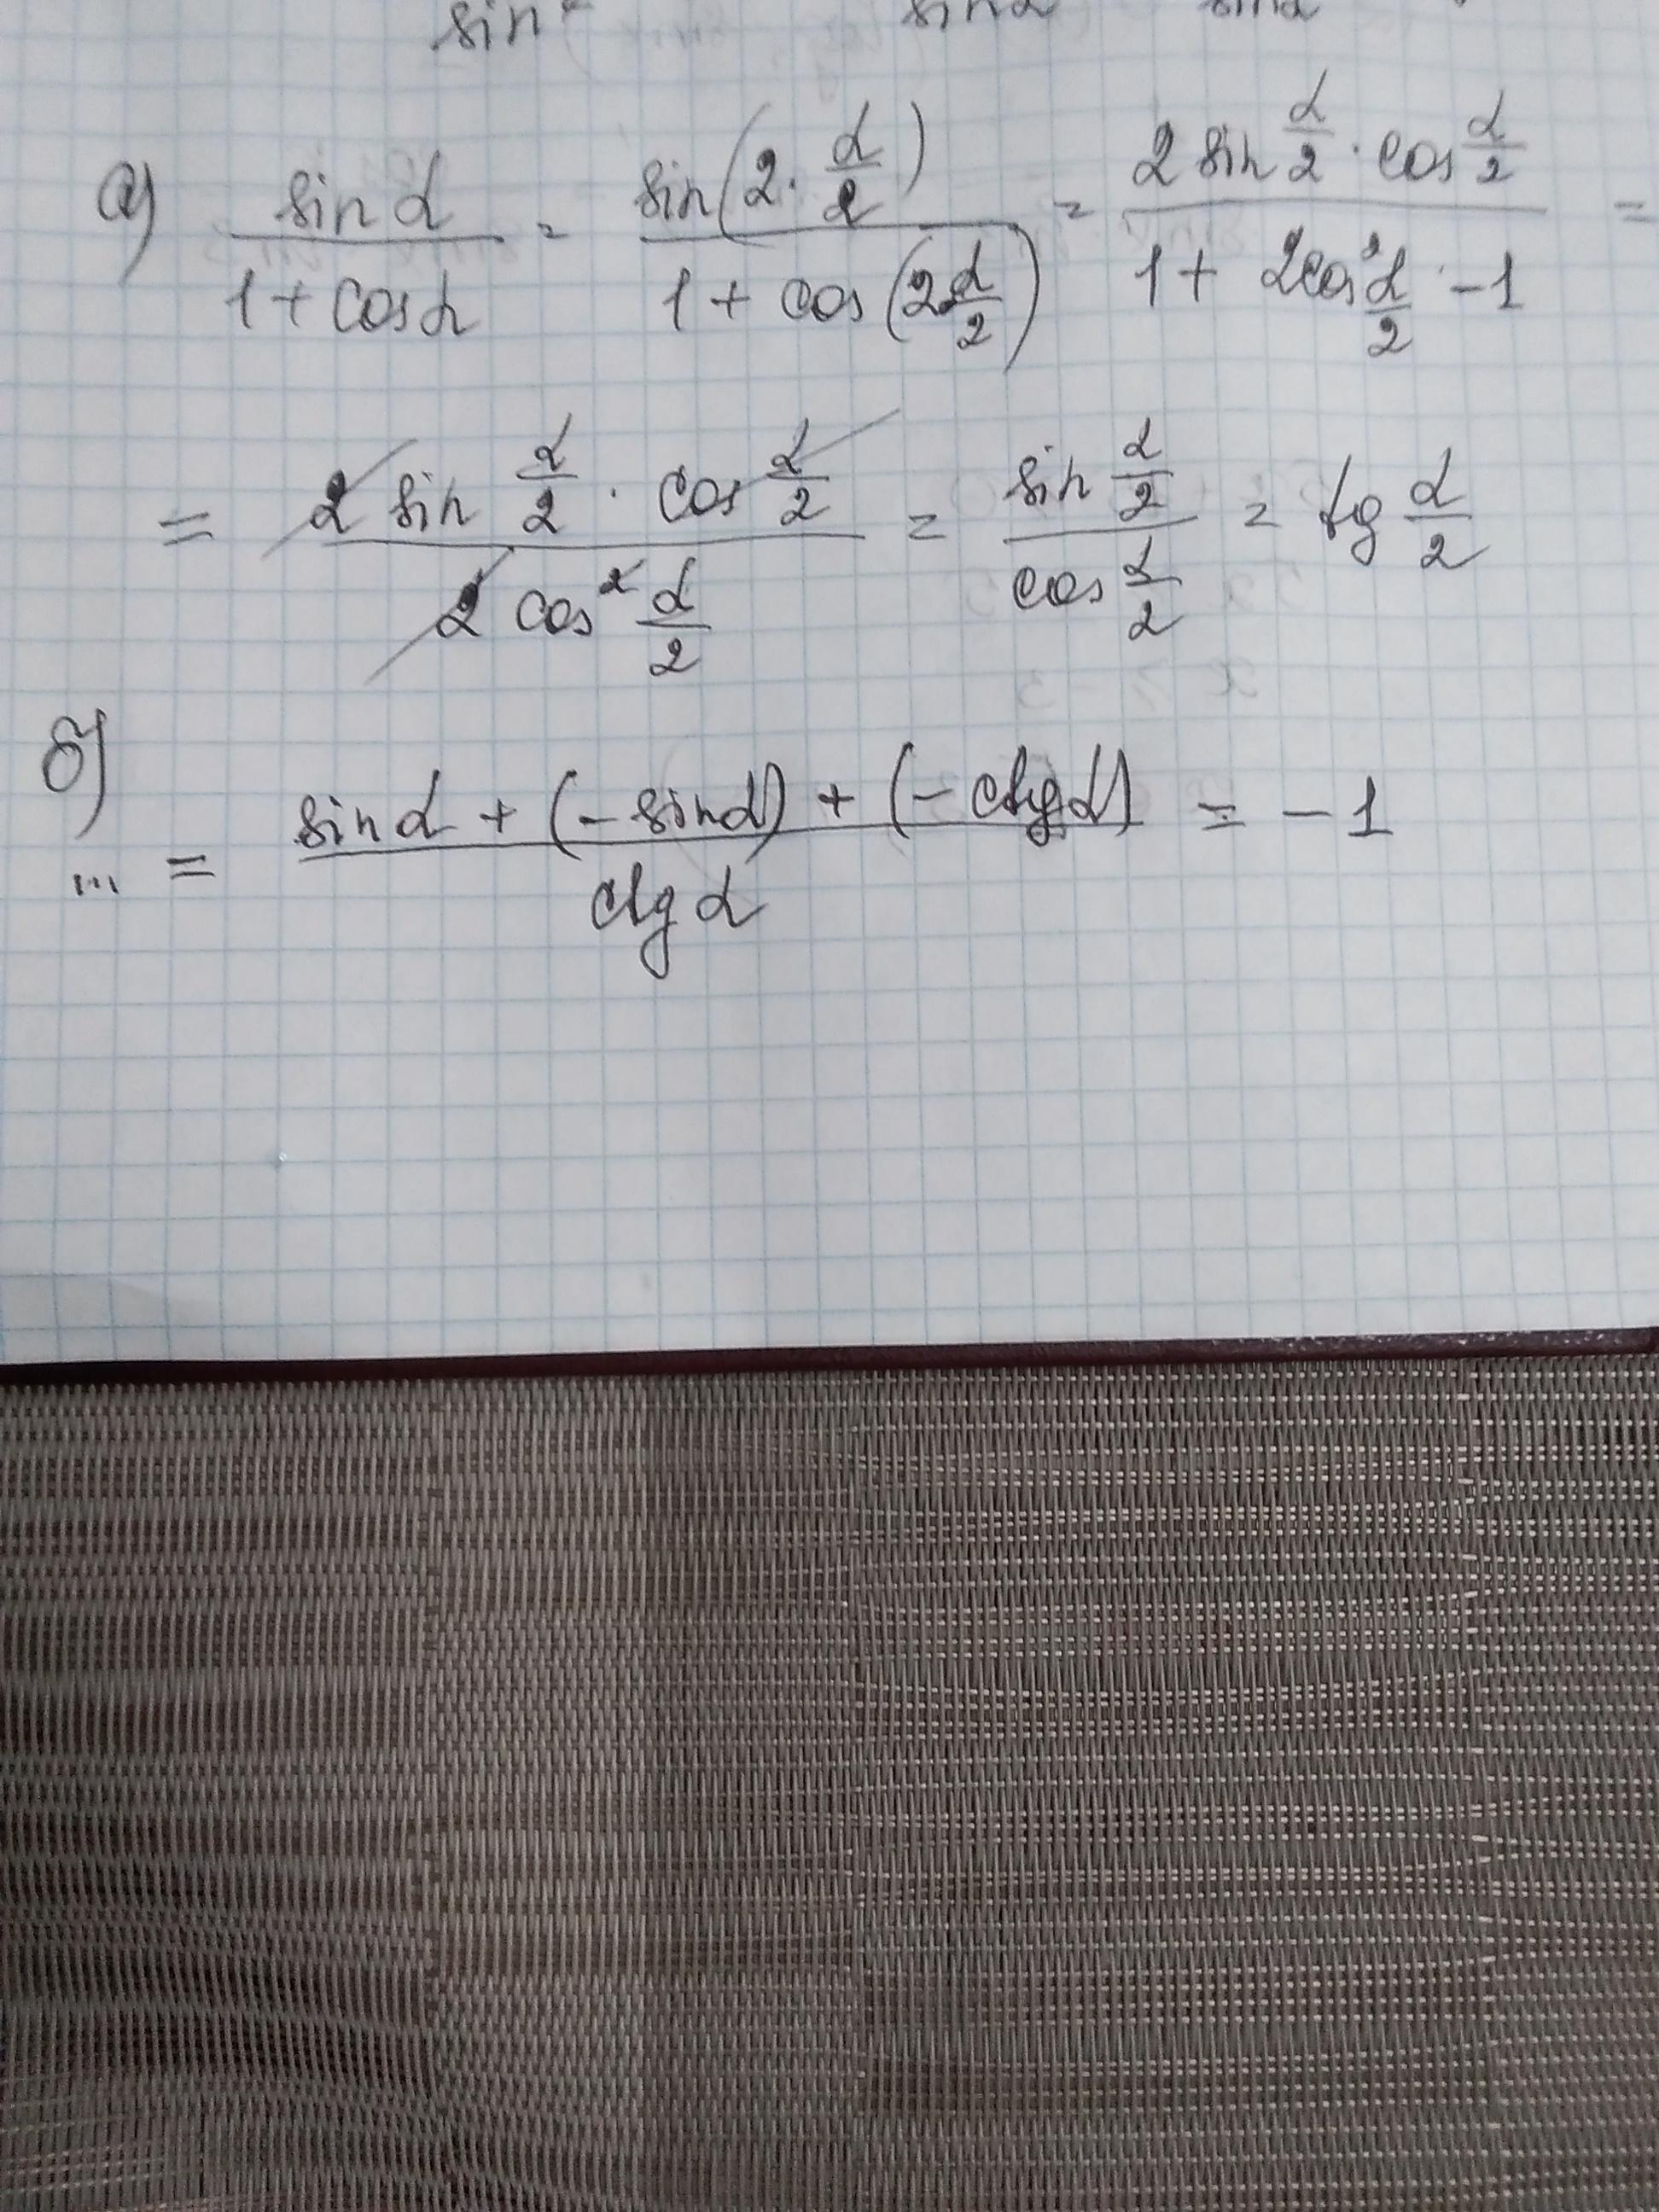 sin² sinα sinα
а) sinα / (1 + cosα) = sin(2 · α/2) / (1 + cos(2α/2)) = 2 sin α/2 · cos α/2 / (1 + 2cos² α/2 - 1) =
= 2 sin α/2 · cos α/2 / (2 cos² α/2) = sin α/2 / cos α/2 = tg α/2
б)
... = (sinα + (-sinα) + (-ctgα)) / ctgα = -1